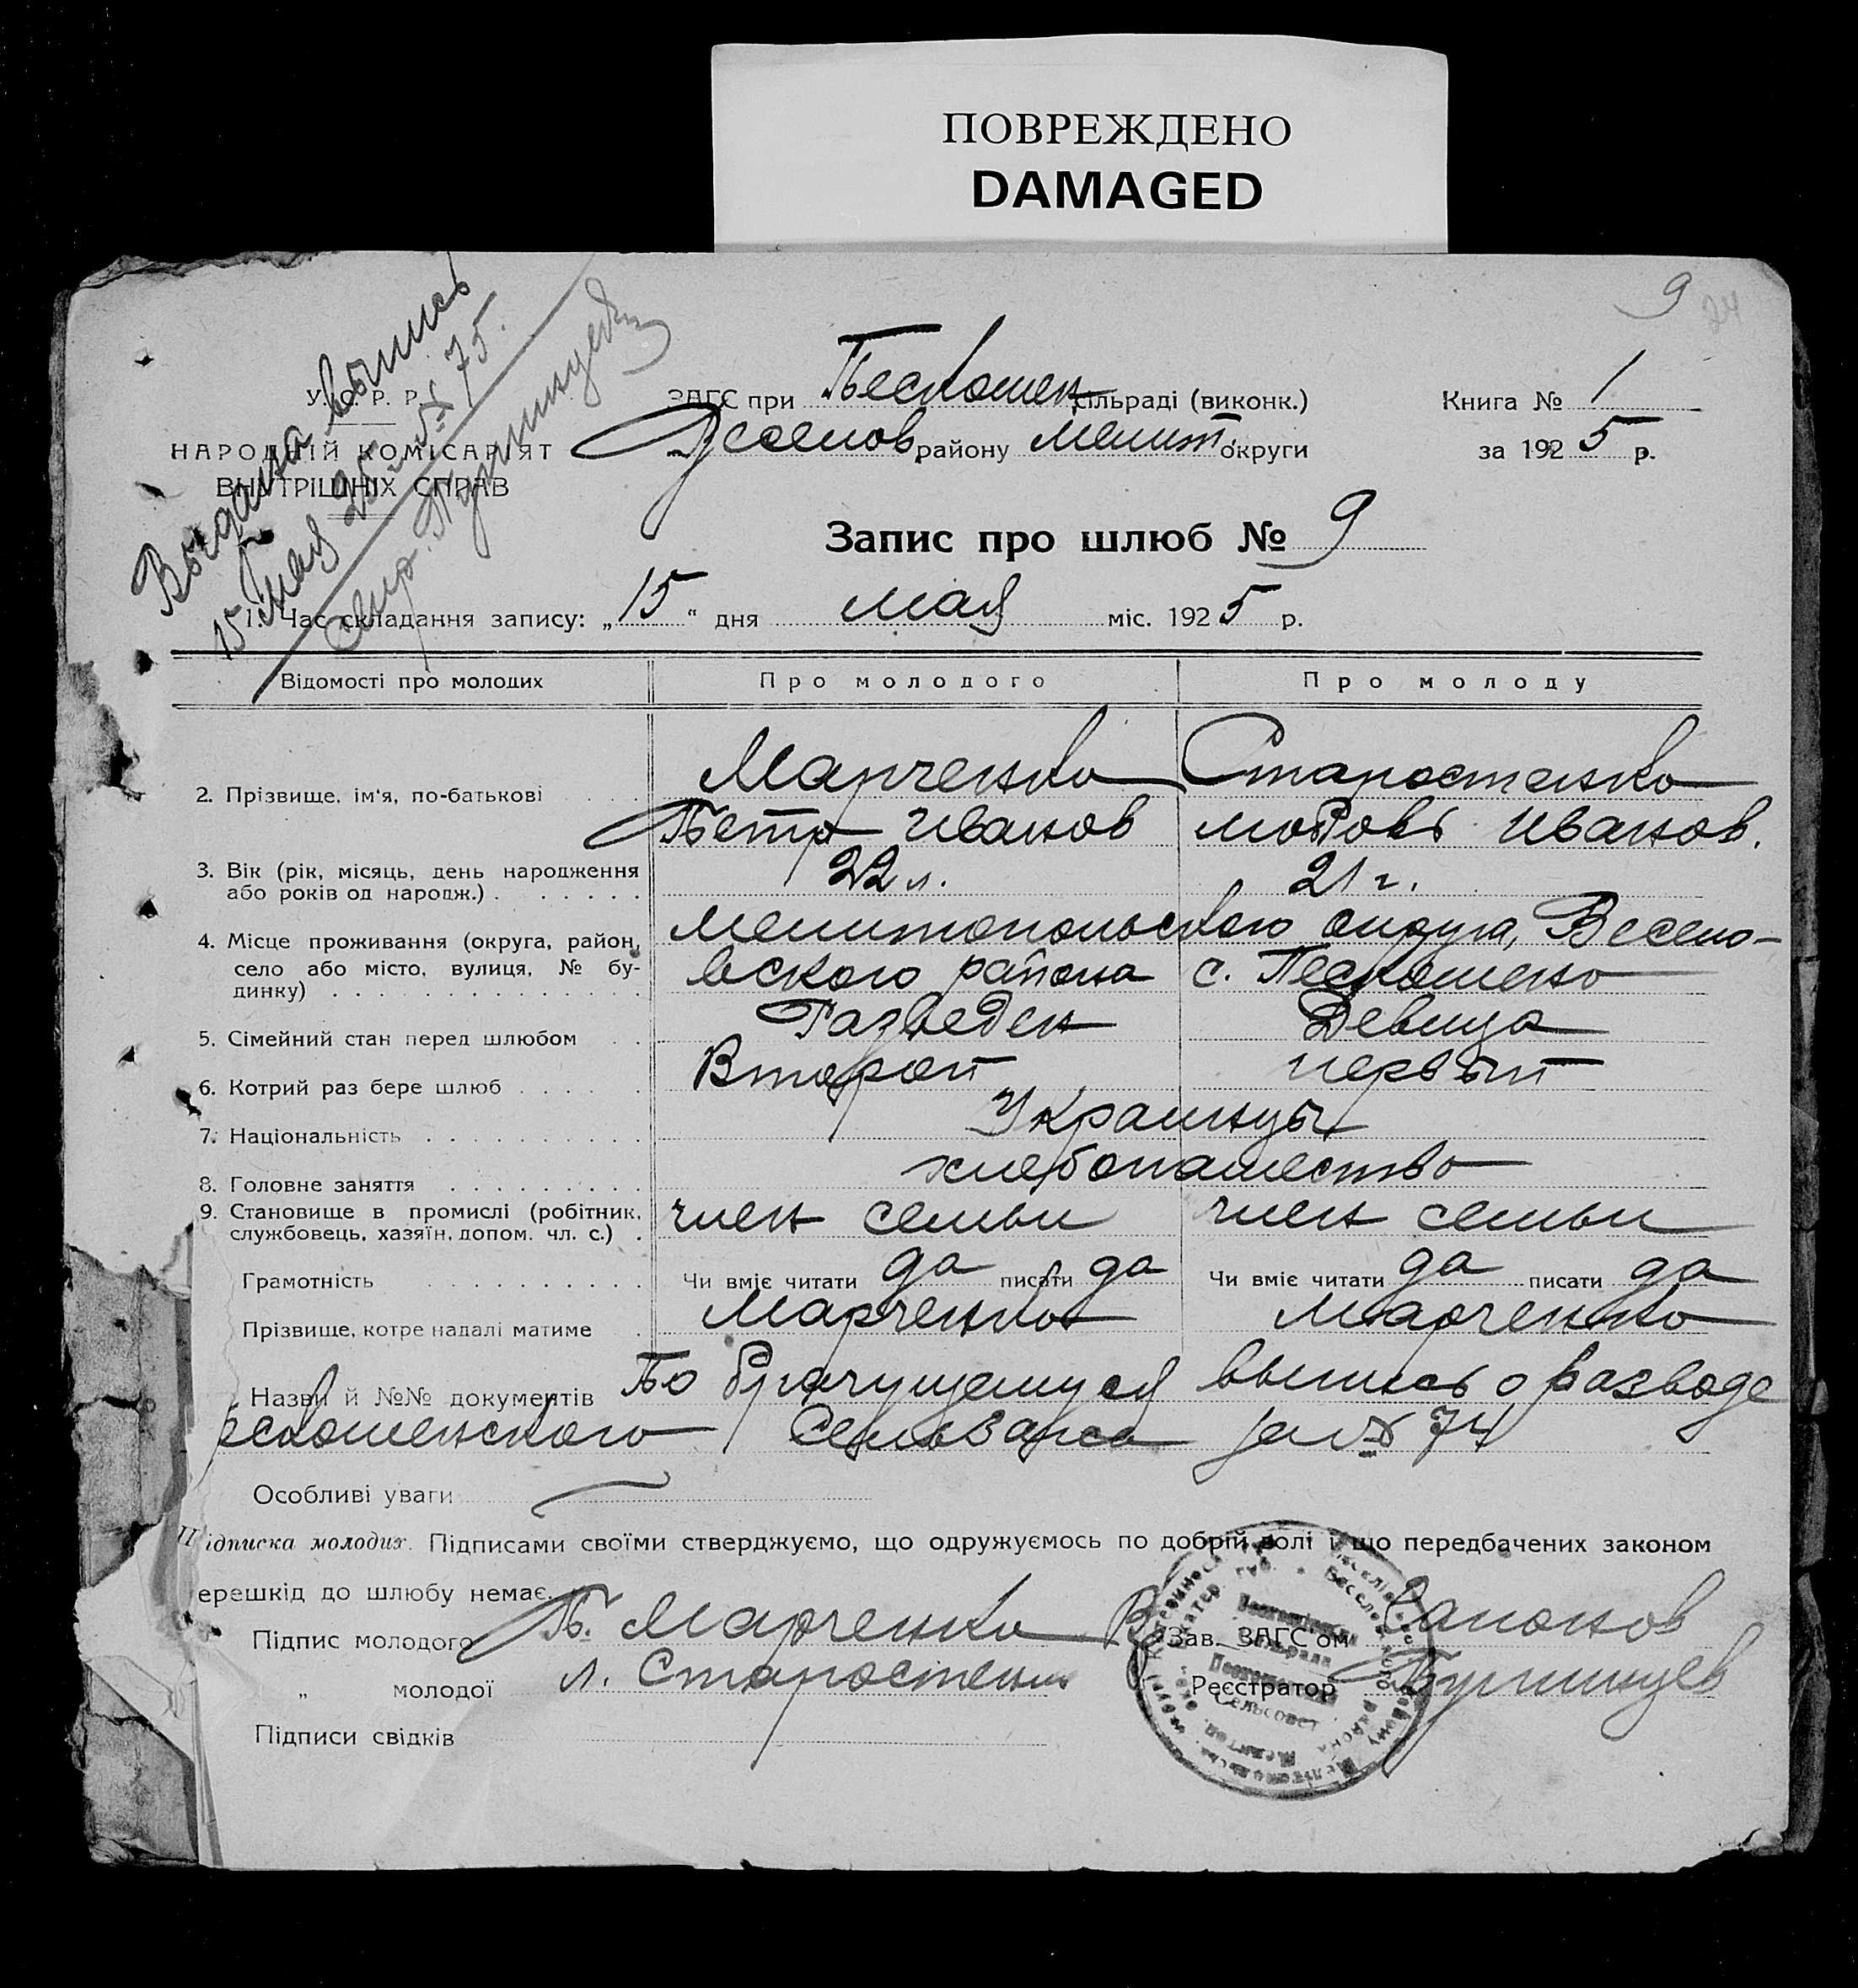 ПОВРЕЖДЕНО
DAMAGED
9
24
Выдана выпись
15 мая 25 г. № 75.
У. С. Р. Р.
НАРОДНІЙ КОМІСАРІЯТ
ВНУТРІШНІХ СПРАВ
ЗАГС при Пескошен сільраді (виконк.)
Веселов району Мелит. округи
Книга № 1
за 1925 р.
Запис про шлюб № 9
1. Час складання запису: „15“ дня мая міс. 1925 р.
Відомості про молодих Про молодого Про молоду
2. Прізвище, ім'я, по-батькові . . . Марченко Старостенко
Петр Иванов Любовь Иванов.
3. Вік (рік, місяць, день народження
або років од народж.) . . . . . . 22 л. 21 г.
4. Місце проживання (округа, район,
село або місто, вулиця, № бу-
динку) . . . . . . . . . . . . . .
Мелитопольского округа, Весело-
вского района с. Пескошено
5. Сімейний стан перед шлюбом . . Разведен Девица
6. Котрий раз бере шлюб . . . . . Второй первый
7. Національність . . . . . . . . . . Украинцы
8. Головне заняття . . . . . . . . . хлебопашество
9. Становище в промислі (робітник,
службовець, хазяїн, допом. чл. с.) . член семьи член семьи
Грамотність . . . . . . . . . . Чи вміє читати да писати да Чи вміє читати да писати да
Прізвище, котре надалі матиме . Марченко Марченко
Назви й №№ документів По брачущемуся выпись о разводе
ескошенского Сельзагса за № 74
Особливі уваги
Підписка молодих. Підписами своїми стверджуємо, що одружуємось по добрій волі і що передбачених законом
ерешкід до шлюбу немає.
Підпис молодого П. Марченко
„ молодої Л. Старостенк
Підписи свідків
Зав. ЗАГС'ом Сапонов
Реєстратор
Сельсовет